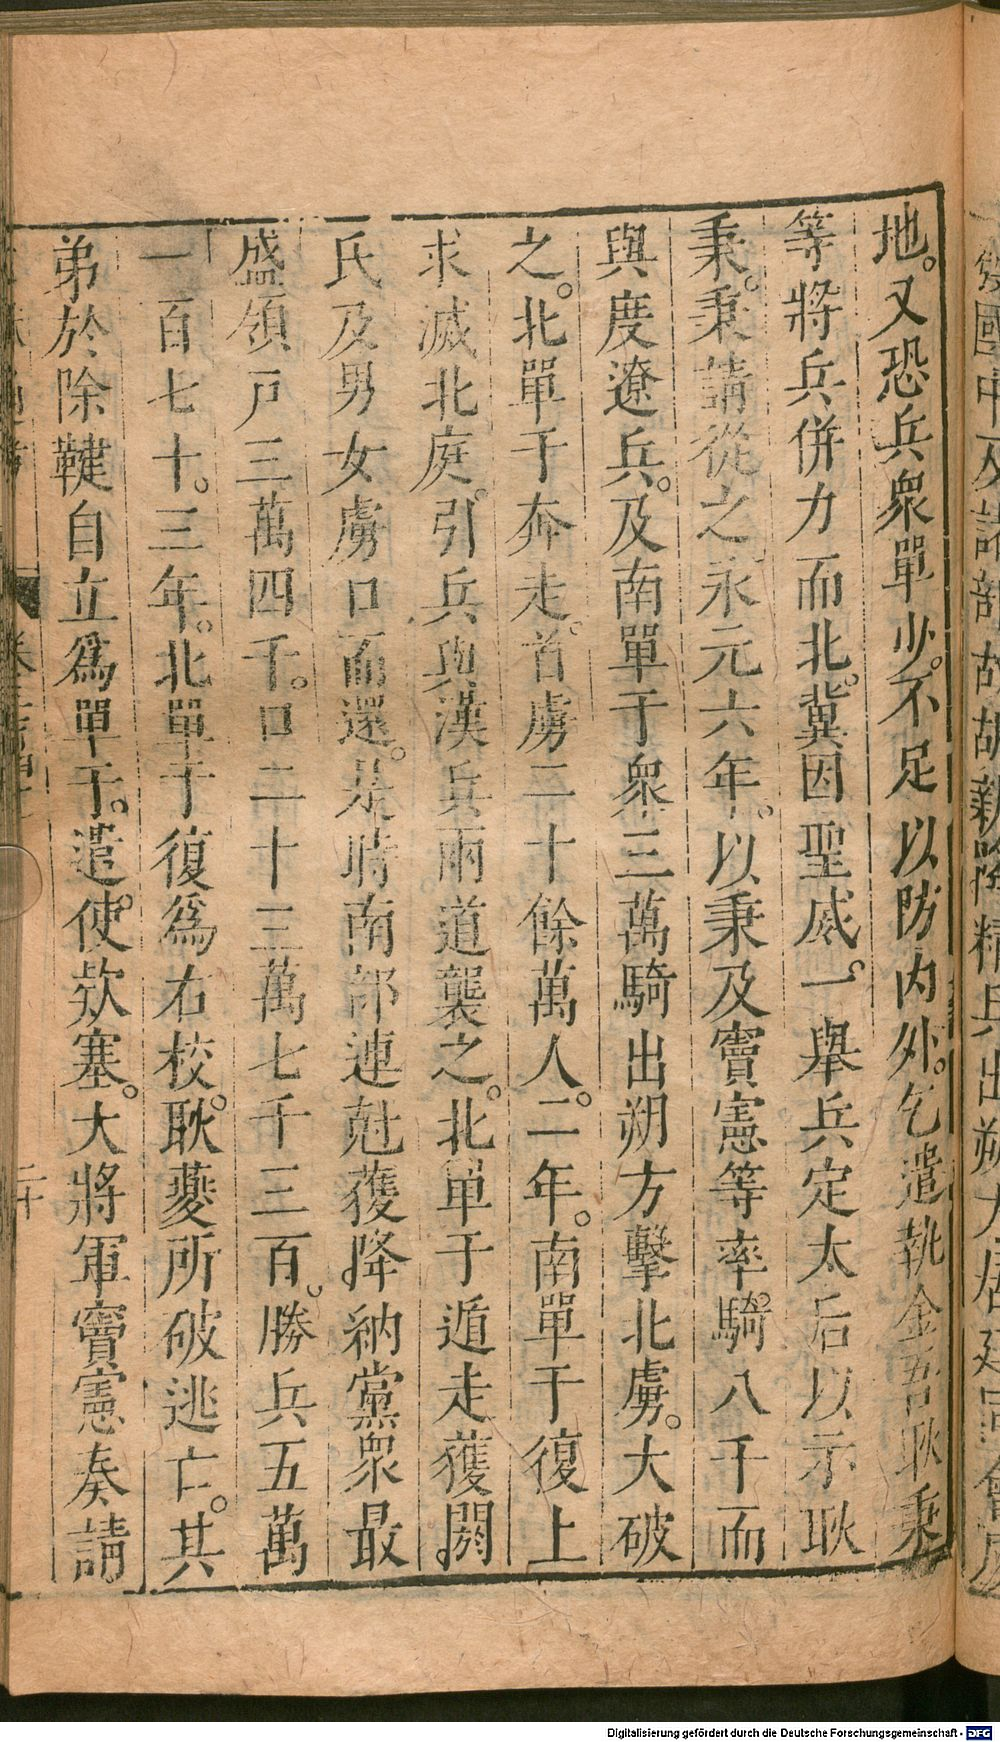 地。又恐兵衆單少。不足以防内外。乞遣執金吾耿秉
等將兵併力而北。冀因聖威。一舉兵定太后以示耿
秉。秉請從之永元六年。以秉及竇憲等率騎八千而
與度遼兵。及南單于衆三萬騎出朔方擊北虜。大破
之。北單于奔走。首虜二十餘萬人。二年。南單于復上
求滅北庭。引兵與漢兵兩道襲之。北單于遁走獲閼
氏及男女虜口而還。是時南部連尅獲降納黨衆最
盛領戸三萬四千。口二十三萬七千三百。勝兵五萬
一百七十。三年。北單于復爲右校。耿夔所破逃亡。其
弟於除鞬自立爲單于。遣使欵塞。大將軍竇憲奏請
二十
Digitalisierung gefördert durch die Deutsche Forschungsgemeinschaft - DFG